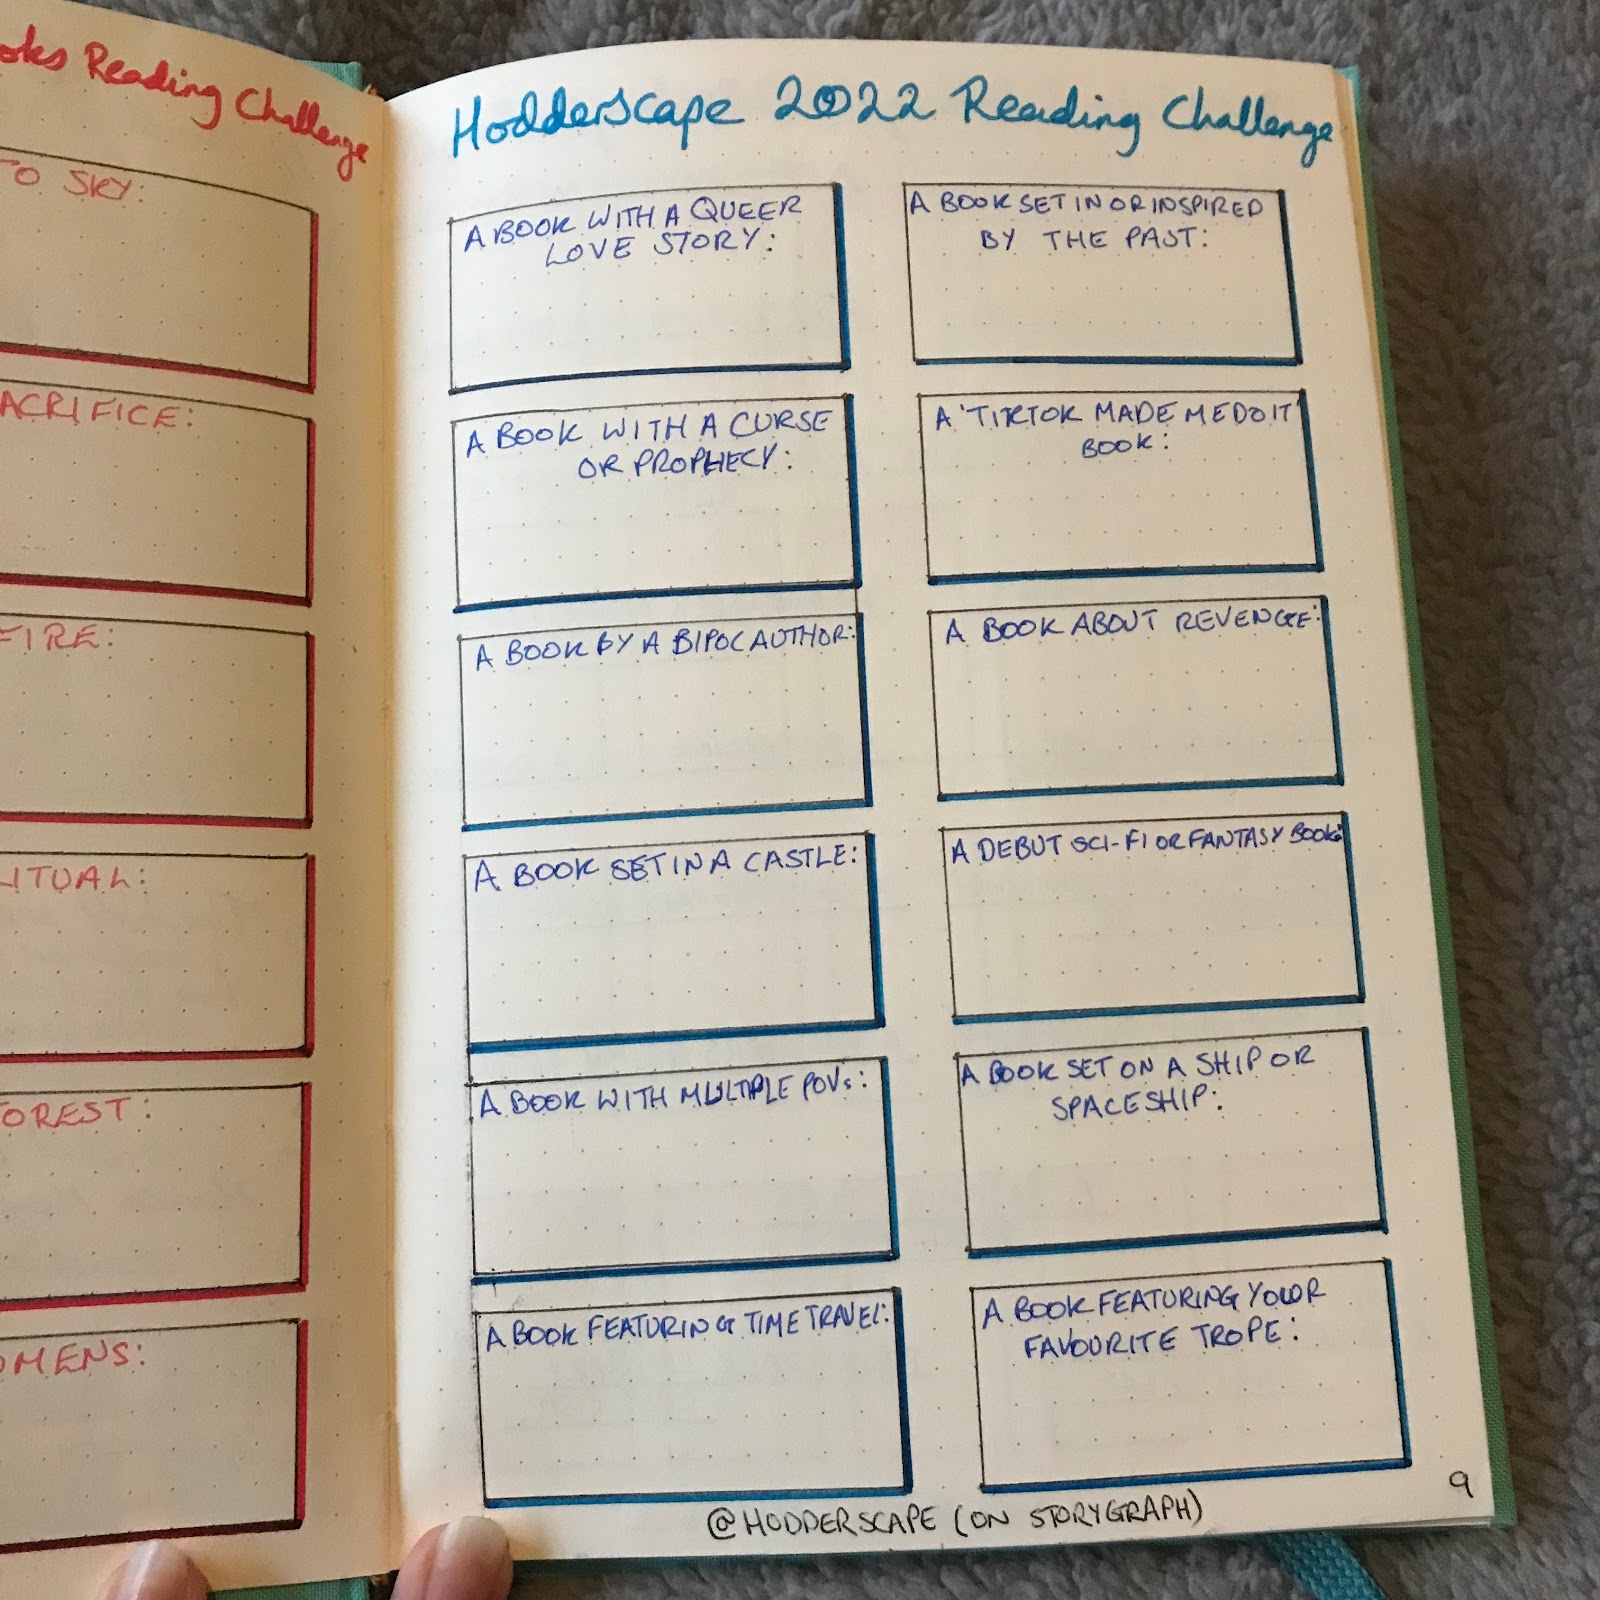 Reading Challenge
TO SKY:
SACRIFICE:
FIRE:
RITUAL:
FOREST:
OMENS:
Hodderscape 2022 Reading Challenge
A BOOK WITH A QUEER
LOVE STORY:
A BOOK SET IN OR INSPIRED
BY THE PAST:
A BOOK WITH A CURSE
OR PROPHECY:
A 'TIKTOK MADE ME DO IT'
BOOK:
A BOOK BY A BIPOC AUTHOR:
A BOOK ABOUT REVENGE:
A BOOK SET IN A CASTLE:
A DEBUT SCI-FI OR FANTASY BOOK:
A BOOK WITH MULTIPLE POVs:
A BOOK SET ON A SHIP OR
SPACESHIP:
A BOOK FEATURING TIME TRAVEL:
A BOOK FEATURING YOUR
FAVOURITE TROPE:
@HODDERSCAPE (ON STORYGRAPH)
9